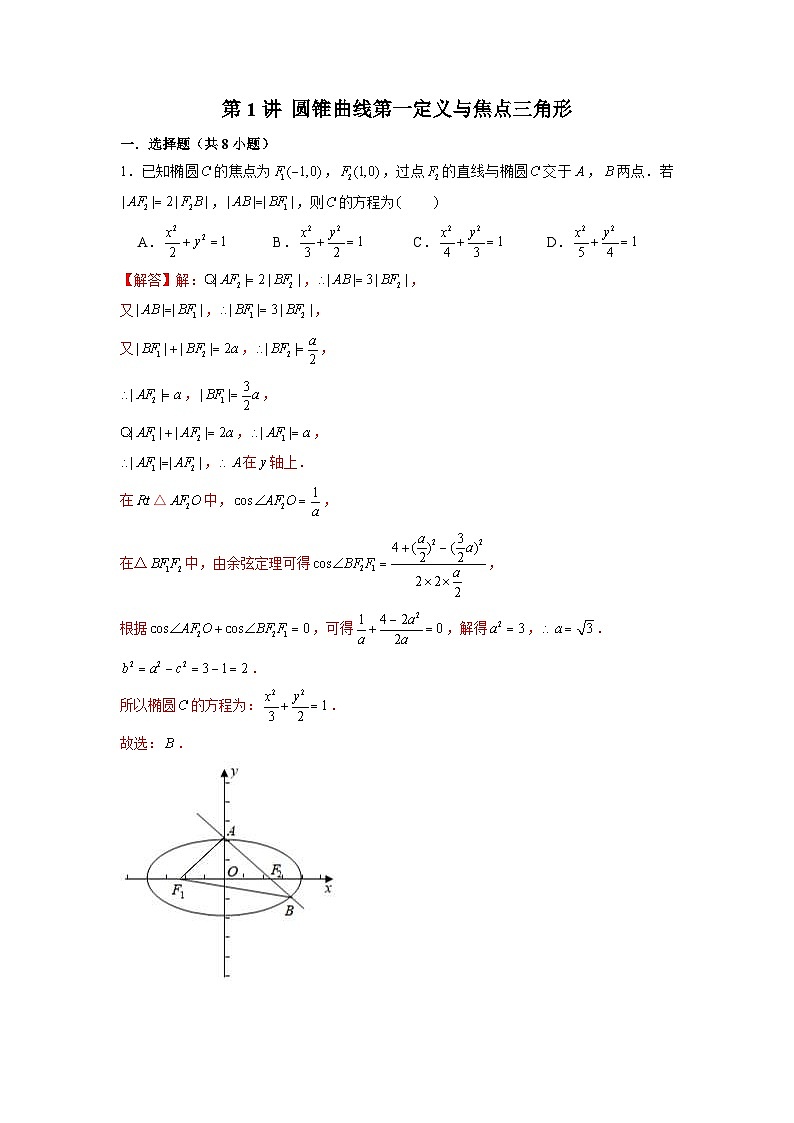 第1讲 圆锥曲线第一定义与焦点三角形
一．选择题（共8小题）
1．已知椭圆C的焦点为F₁(−1,0)，F₂(1,0)，过点F₂的直线与椭圆C交于A，B两点．若
|AF₂|=2|F₂B|，|AB|=|BF₁|，则C的方程为(　　)
A．x²/2+y²=1　B．x²/3+y²/2=1　C．x²/4+y²/3=1　D．x²/5+y²/4=1
【解答】解：Q|AF₂|=2|BF₂|，∴|AB|=3|BF₂|，
又|AB|=|BF₁|，∴|BF₁|=3|BF₂|，
又|BF₁|+|BF₂|=2a，∴|BF₂|=a/2，
∴|AF₂|=a，|BF₁|=3/2a，
Q|AF₁|+|AF₂|=2a，∴|AF₁|=a，
∴|AF₁|=|AF₂|，∴A在y轴上．
在Rt△AF₂O中，cos∠AF₂O=1/a，
在△BF₁F₂中，由余弦定理可得cos∠BF₂F₁=(4+(a/2)²−(3/2a)²)/(2×2×a/2)，
根据cos∠AF₂O+cos∠BF₂F₁=0，可得1/a+(4−2a²)/2a=0，解得a²=3，∴a=√3．
b²=a²−c²=3−1=2．
所以椭圆C的方程为：x²/3+y²/2=1．
故选：B．
y
A
O
F₂
F₁
x
B